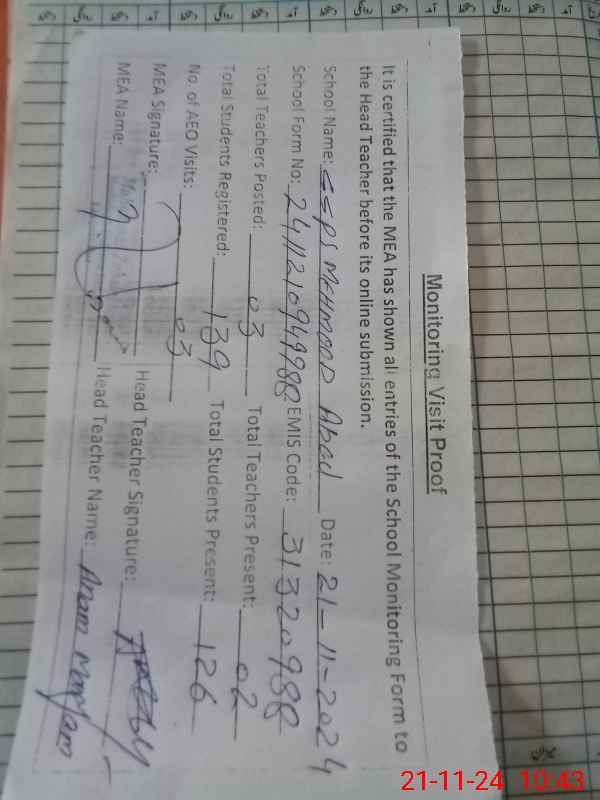 Monitoring Visit Proof
It is certified that the MEA has shown all entries of the School Monitoring Form to
the Head Teacher before its online submission.
School Name: GGPS MEHMOOD Abad Date: 21-11-2024
School Form No: 2411210949988 EMIS Code: 31320988
Total Teachers Posted: 03 Total Teachers Present: 02
Total Students Registered: 139 Total Students Present: 126
No. of AEO Visits: 03
MEA Signature: Head Teacher Signature:
MEA Name: Head Teacher Name: Anam Maryam
21-11-24 10:43